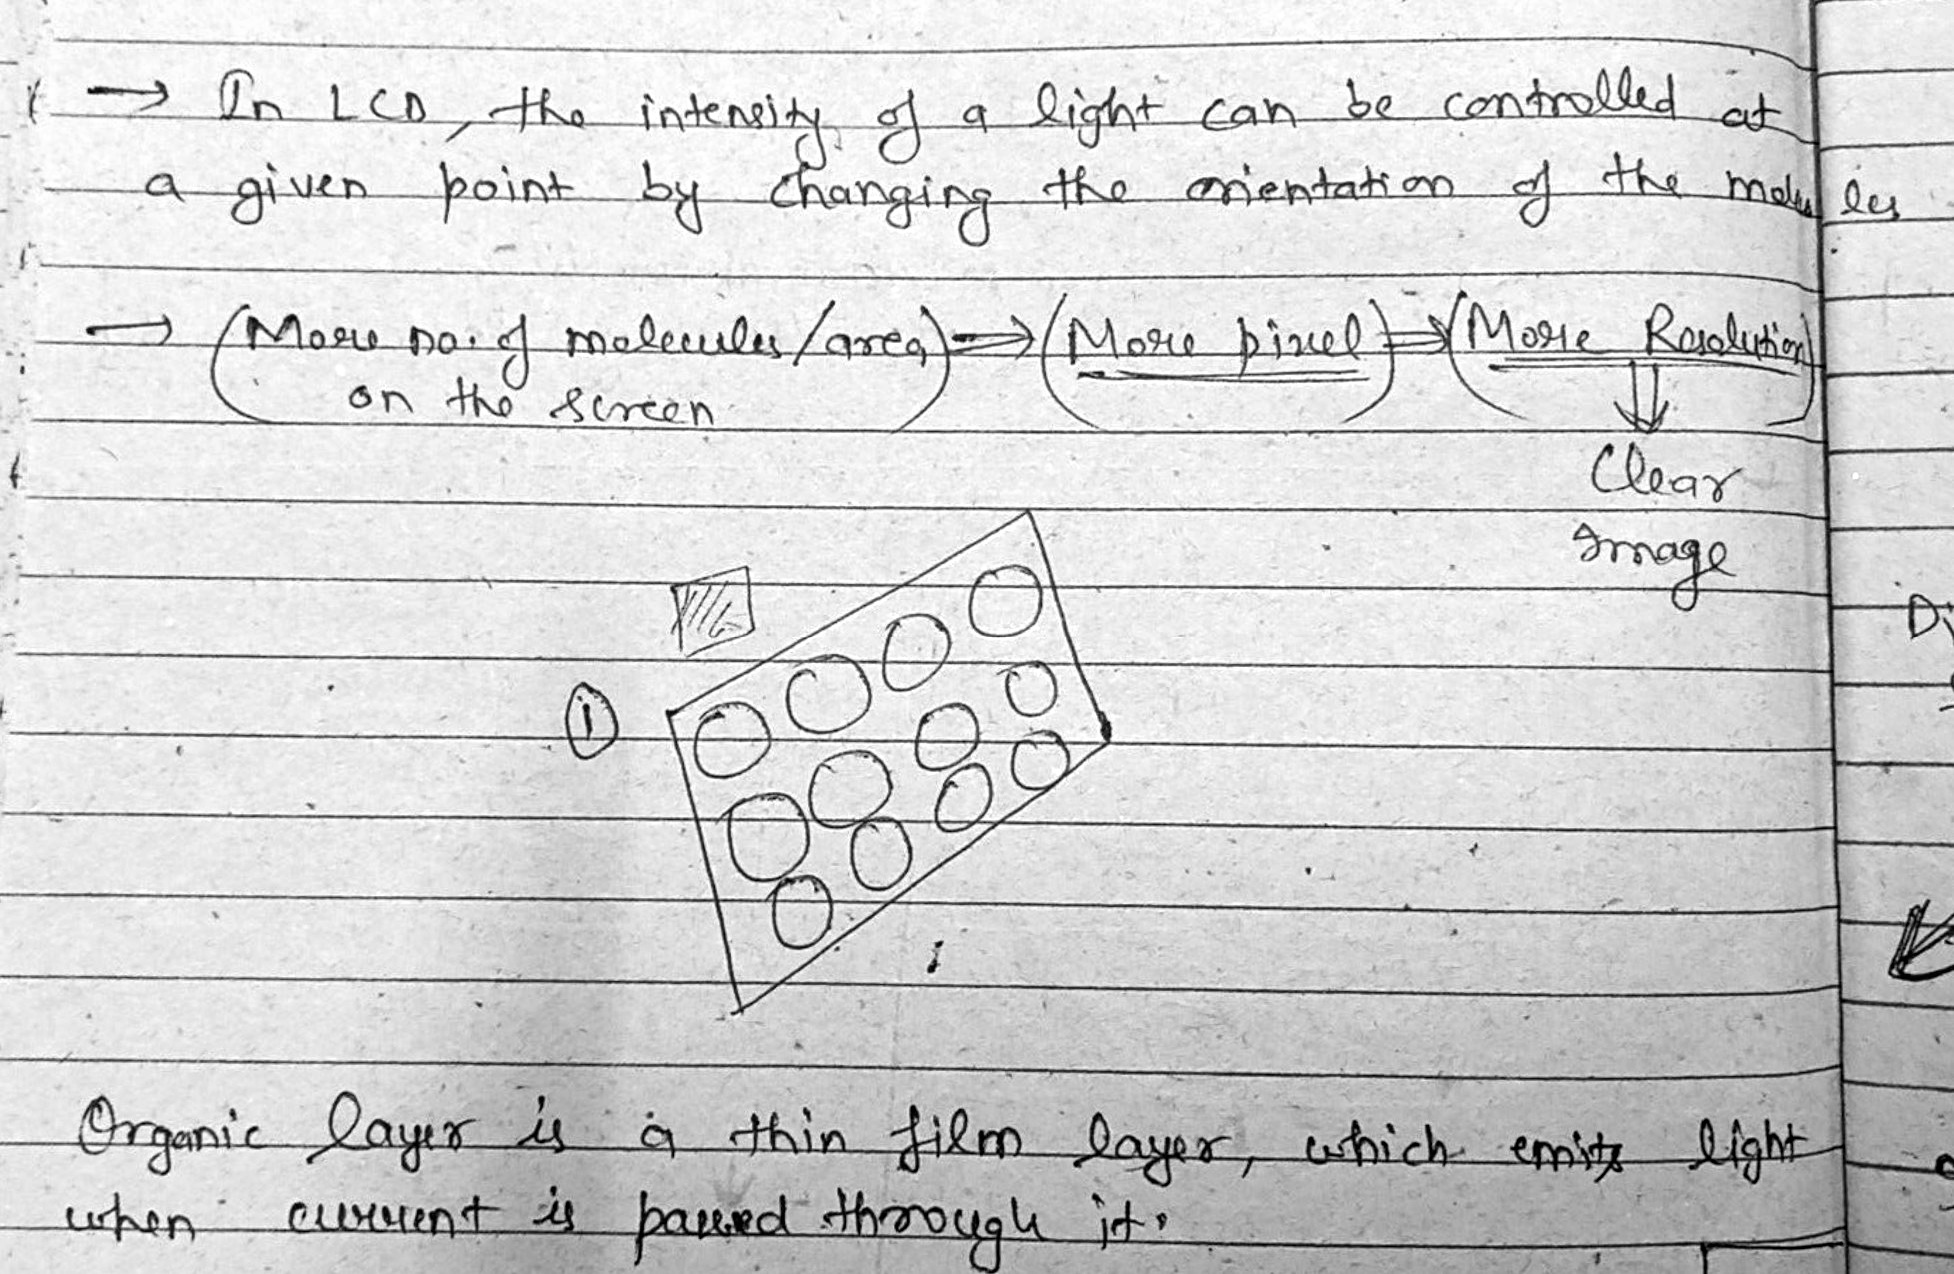 → In LCD, the intensity of a light can be controlled at
a given point by changing the orientation of the molecules
→ (More no. of molecules/area) ⇒ (More pixel) ⇒ (More Resolution)
on the screen
⇓
Clear
Image
①
Organic layer is a thin film layer, which emits light
when current is passed through it.